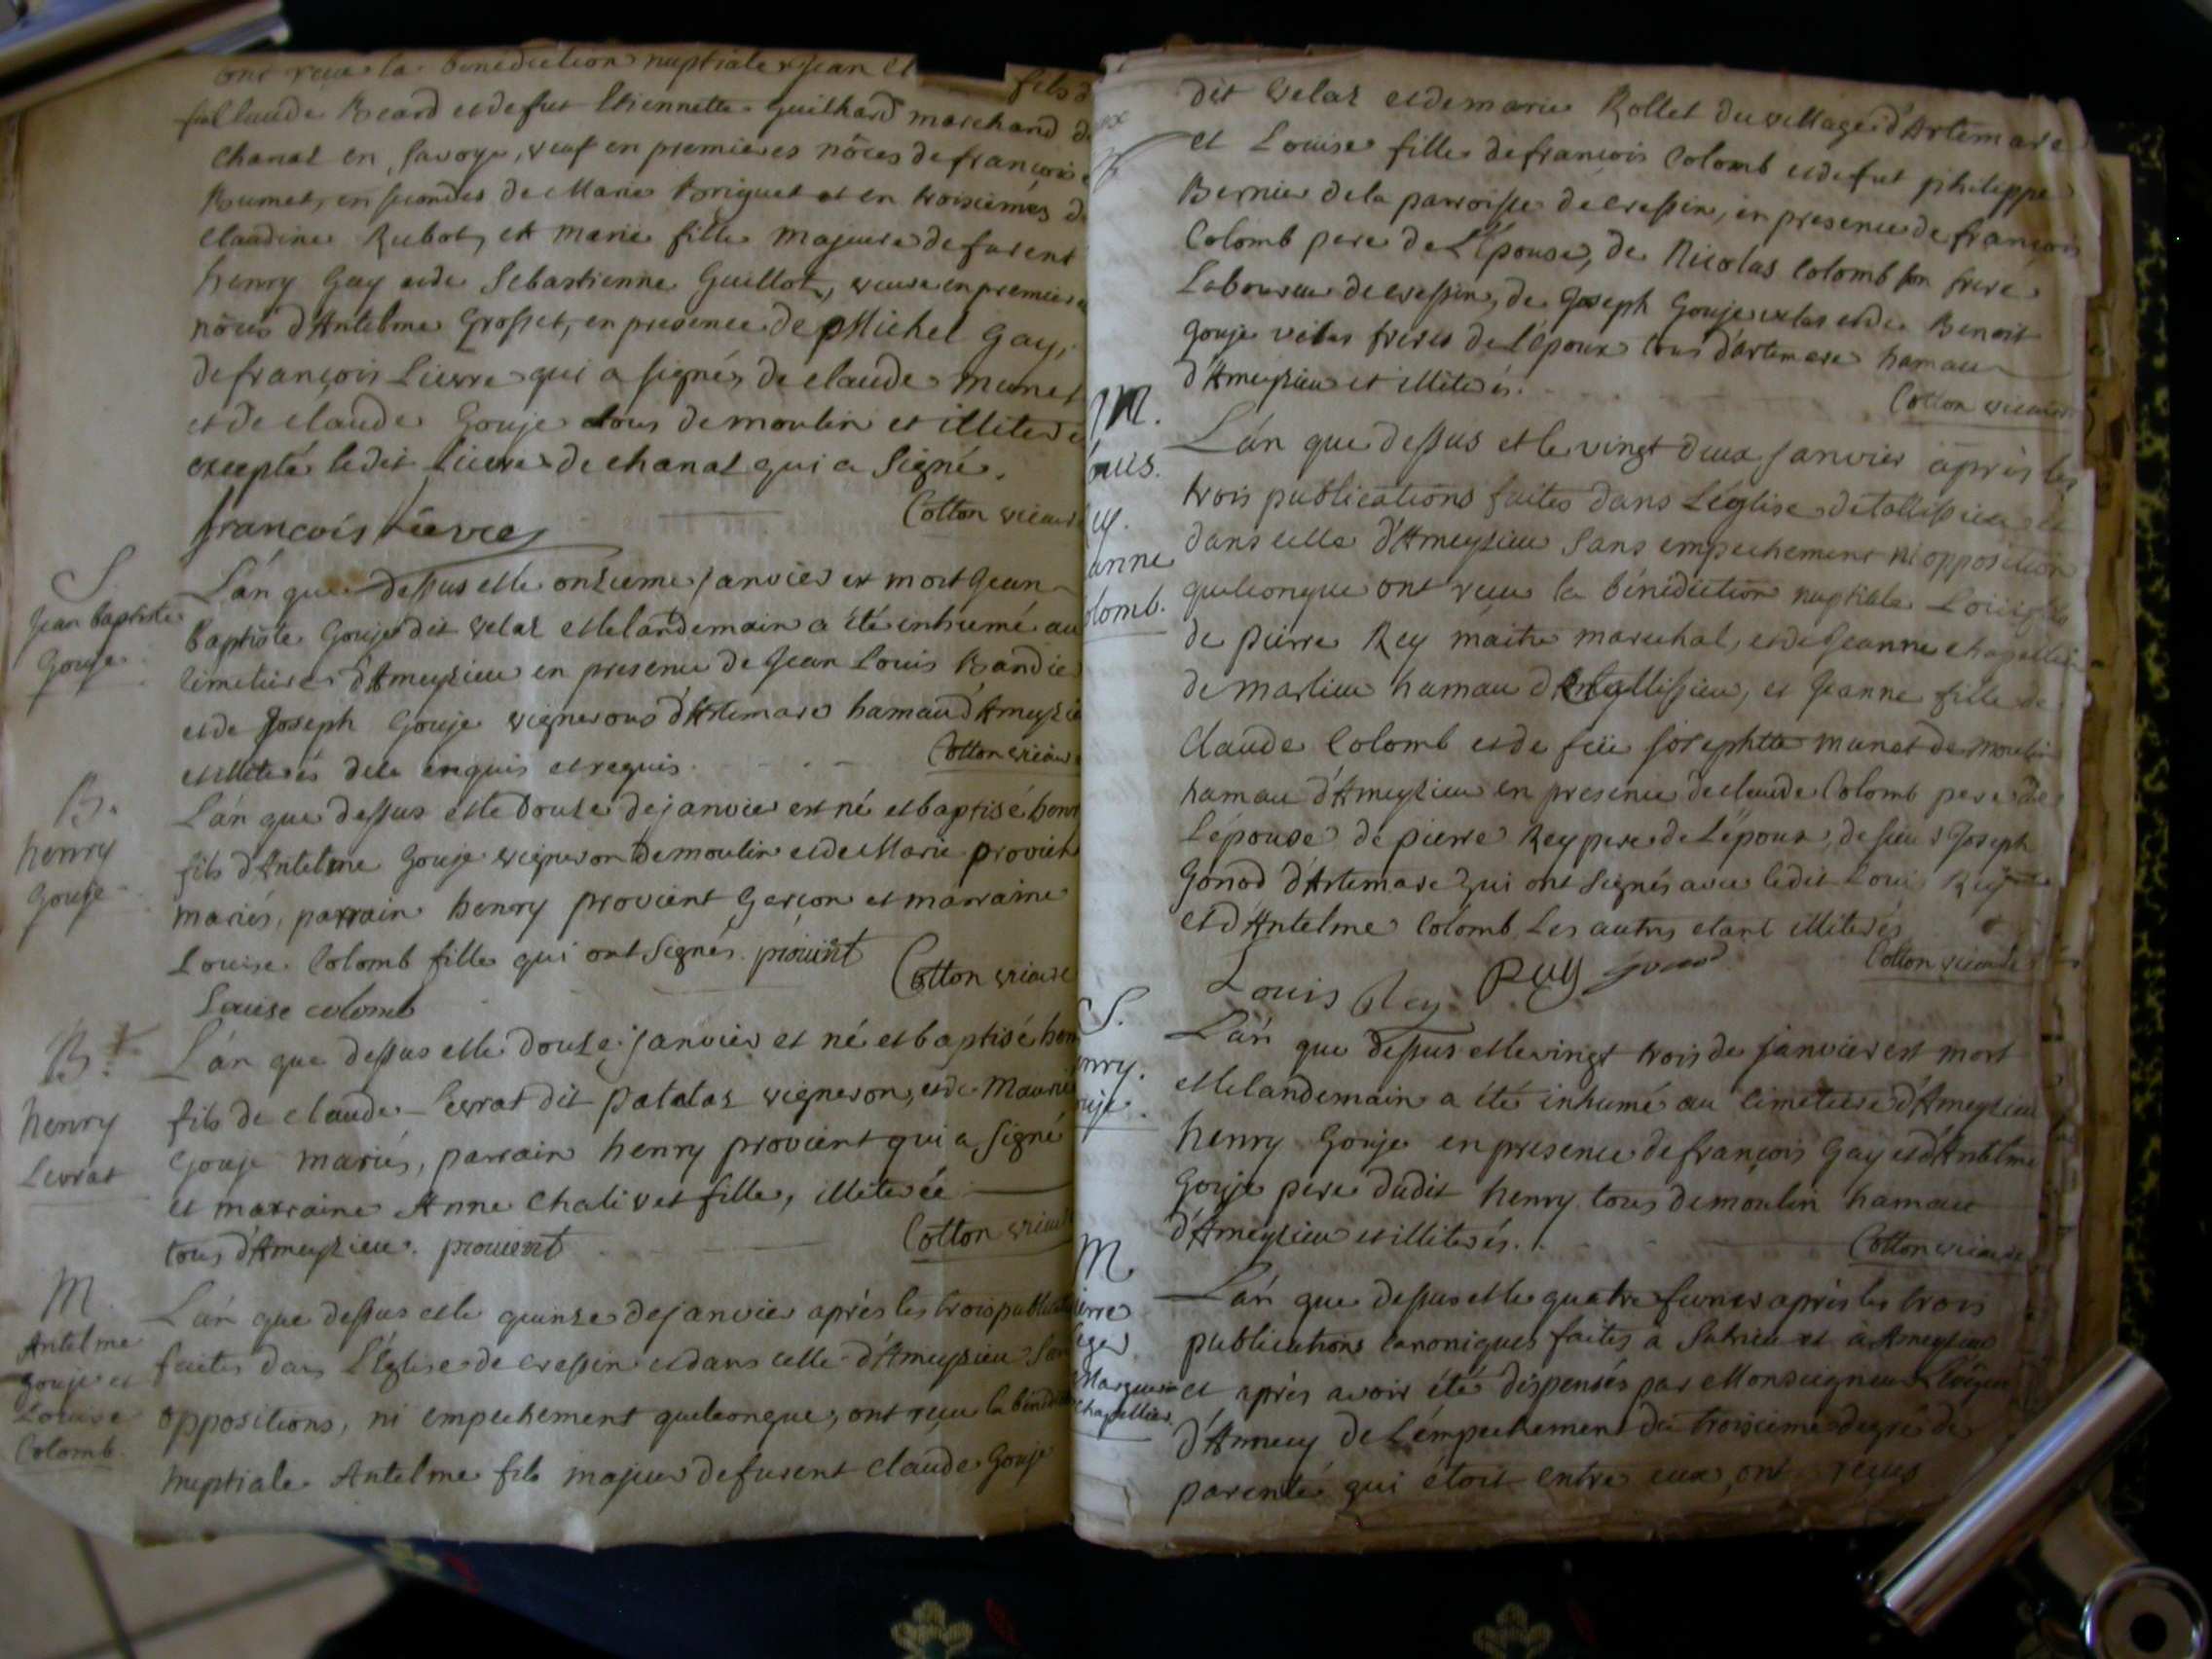 ont reçu la benediction nuptiale Jean Cl fils d
feu Claude Beard et de fut Etiennette Guilhard marchand de
Chanaz en Savoye, veuf en premieres nôces de françoise
Brumet, en secondes de Marie Briguet et en troisiemes de
Claudine Rubot, et marie fille majeure de furent
henry Gay et de Sebastienne Guillot, veuve en premieres
nôces d'Antelme Grosset, en presence de Michel Gay,
de françois Lievre qui a signé, de claude munet
et de claude Gouje tous de moulin et illiterés
excepté ledit Lievre de chanaz qui a signé.
françois Lievre
Cotton vicaire
S.
Jean Baptiste
Gouje.
L'an que dessus et le onzieme janvier est mort Jean
Baptiste Gouje dit velaz et le landemain a été inhumé au
cimetiere d'Ameyzieu en presence de Jean Louis Bandie
et de Joseph Gouje vignerons d'Artemare hamau d'Ameyzieu
et illiterés de ce enquis et requis.
Cotton vicaire
B.
henry
Gouje
L'an que dessus et le douze de janvier est né et baptisé henry
fils d'Antelme Gouje vigneron de moulin et de Marie provient
mariés, parrain henry provient Garçon et marraine
Louise Colomb fille qui ont signés. provient
Cotton vicaire
Louise colomb
B.
henry
Levrat
L'an que dessus et le douze janvier et né et baptisé henry
fils de claude Levrat dit patataz vigneron, et de Maurise
Gouje mariés, parrain henry provient qui a signé
et marraine Anne Chalivet fille, illiterée
tous d'Ameyzieu. provient
Cotton vicaire
M.
Antelme
Gouje et
Louise
Colomb.
L'an que dessus et le quinze de janvier après les trois publications
faites dans L'Eglise de cressin et dans celle d'Ameyzieu Sans
oppositions, ni empechement quelconque, ont reçu la benediction
nuptiale Antelme fils majeur de furent claude Gouje
dit velaz et de marie Rollet du village d'Artemare
et Louise fille de françois Colomb et de fut philippe
Bernier de la parroisse de cressin, en presence de françois
Colomb pere de L'épouse, de Nicolas Colomb son frere
Laboureur de cressin, de Joseph Gouje velaz et de Benoit
Gouje velas freres de l'époux tous d'artemare hamau
d'Ameyzieu et illiterés.
Cotton vicaire
M.
ouis
ey.
anne
olomb.
L'an que dessus et le vingt deux janvier après les
trois publications faites dans L'église de tallissieu et
dans celle d'Ameyzieu Sans empechement ni opposition
quelconque ont reçu la bénédiction nuptiale Louis fils
de pierre Rey maitre marechal, et de Jeanne chapellier
de marlieu hamau de tallissieu, et Jeanne fille de
Claude Colomb et de feüe Josephtte munet de moulin
hamau d'Ameyzieu en presence de claude Colomb pere de
L'épouse de pierre Rey pere de L'époux, de sieur Joseph
Gonod d'Artemare qui ont signés avec ledit Louis Rey
et d'Antelme Colomb Les autres etant illiterés
Cotton vicaire
Louis Rey Rey gonod
S.
enry.
ouje.
L'an que dessus et le vingt trois de janvier est mort
et le landemain a été inhumé au cimetiere d'Ameyzieu
henry Gouje en presence de françois Gay et d'Antelme
Gouje pere dudit henry tous de moulin hamau
d'Ameyzieu et illiterés.
Cotton vicaire
M.
ierre
eger
Marguerite
chapellier.
L'an que dessus et le quatre fevrier après les trois
publications canoniques faites a Sutrieu et à Ameyzieu
et après avoir été dispensés par Monseigneur L'évêque
d'Annecy de L'émpechement du troisieme degré de
parenté qui étoit entre eux, ont reçus